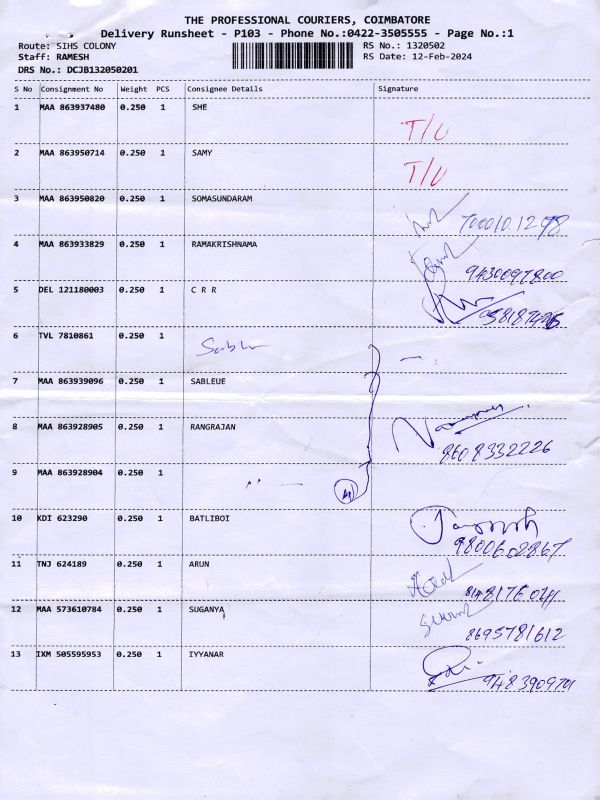 THE PROFESSIONAL COURIERS, COIMBATORE
Delivery Runsheet - P103 - Phone No.:0422-3505555 - Page No.:1
Route: SIHS COLONY RS No.: 1320502
Staff: RAMESH RS Date: 12-Feb-2024
DRS No.: DCJB132050201
S No Consignment No Weight PCS Consignee Details Signature
1 MAA 863937480 0.250 1 SHE
T/U
2 MAA 863950714 0.250 1 SAMY
T/U
3 MAA 863950820 0.250 1 SOMASUNDARAM
4 MAA 863933829 0.250 1 RAMAKRISHNAMA
9430097800
5 DEL 121180003 0.250 1 C R R
6 TVL 7810861 0.250 1
7 MAA 863939096 0.250 1 SABLEUE
8 MAA 863928905 0.250 1 RANGRAJAN
8608332226
9 MAA 863928904 0.250 1
10 KDI 623290 0.250 1 BATLIBOI
9800602867
11 TNJ 624189 0.250 1 ARUN
12 MAA 573610784 0.250 1 SUGANYA
8695781612
13 IXM 505595953 0.250 1 IYYANAR